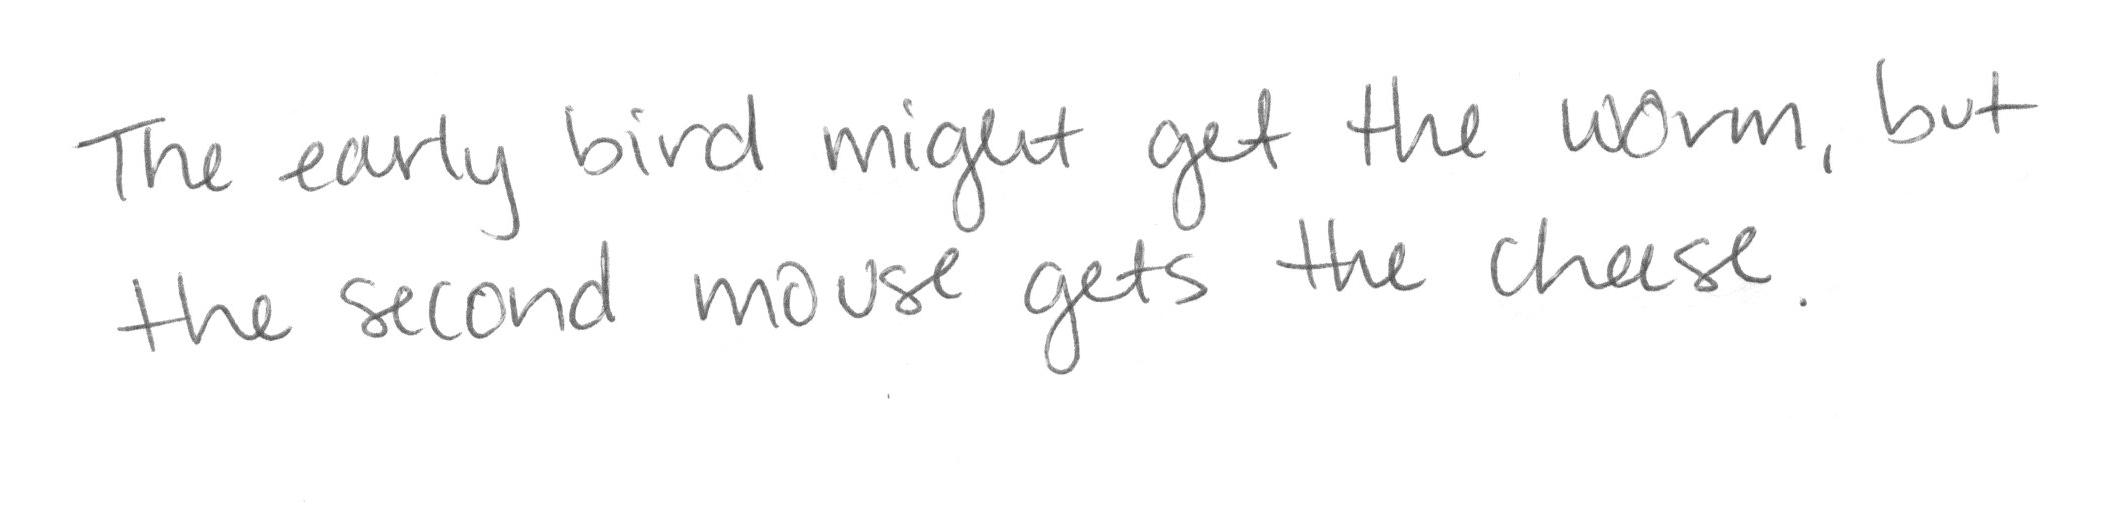 The early bird might get the worm, but
the second mouse gets the cheese.